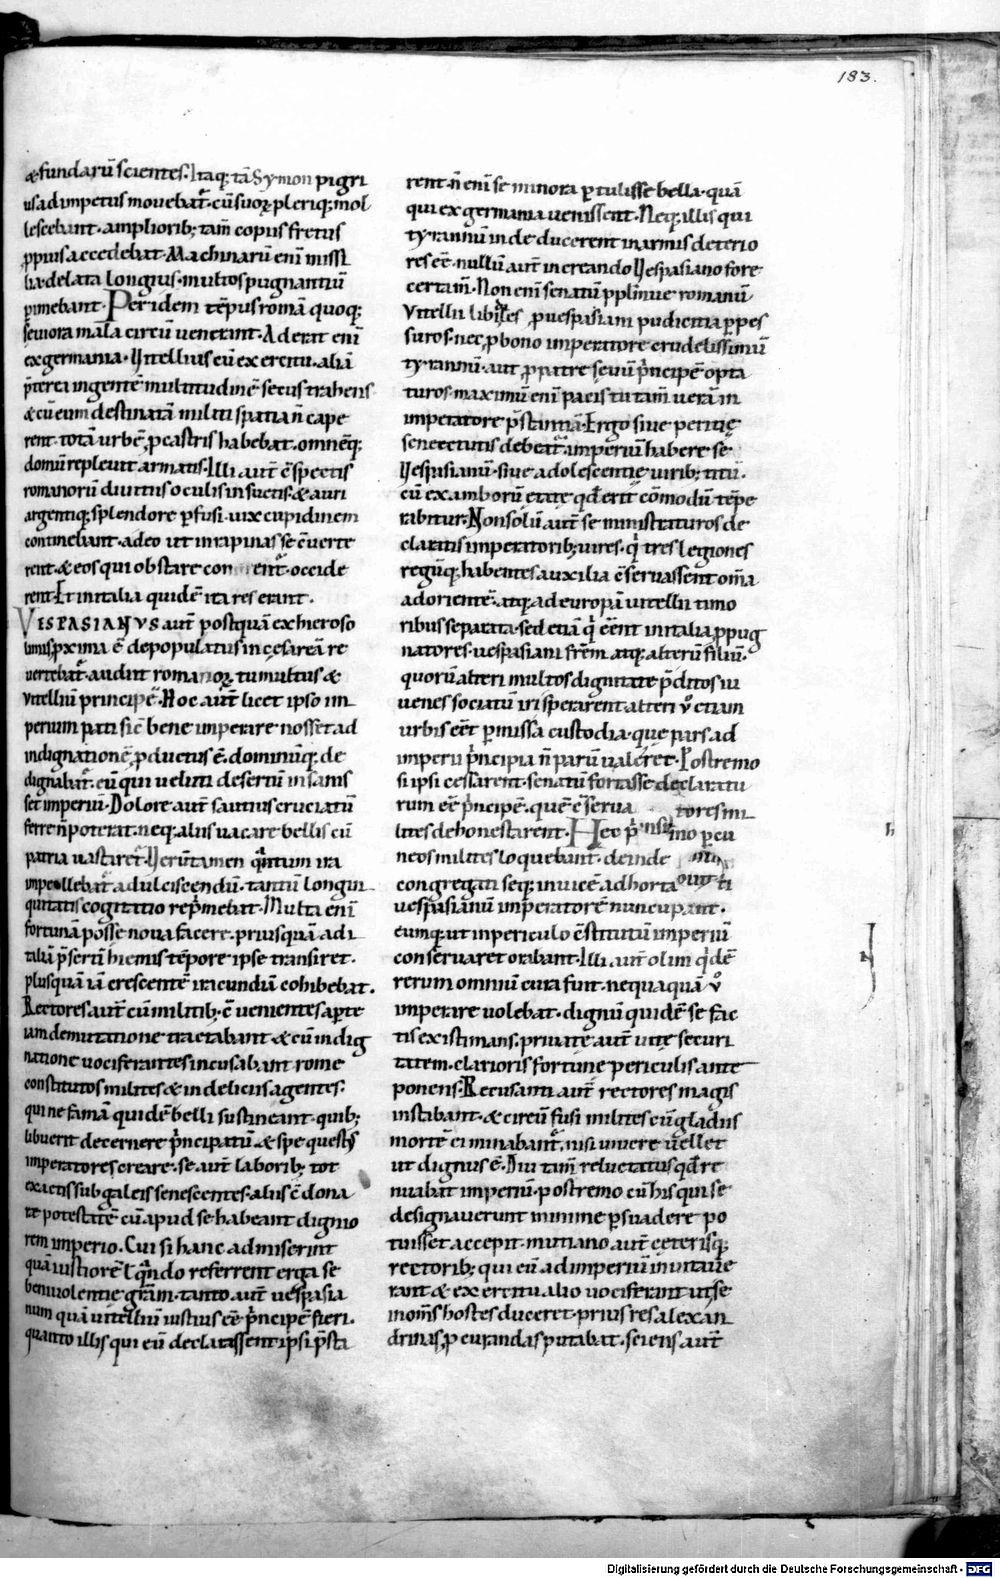 183.
& fundarū scientes. Itaq; tā Symon pigri
us ad impetus mouebat̄. cū suoꝝ pleriq; mol
lescebant. amplioribꝫ tam̄ copiis fretus
ꝓpius accedebat. Machinarū eni missi
lia delata longius. multos pugnantiū
pimebant. Per idem tēpus romā quoq;
seuiora mala circū uenerant. Aderat eni
ex germania. Vitellius cū exercitu. aliā
p̄terea ingentē multitudinē secus trahens
& cū eum destinatā militi spatia n̄ cape
rent. totā urbē ꝓ castris habebat. omnēq;
domū repleuit armatis. Illi aut̄ ē spectis
romanorū diuitiis oculis insuetis. & auri
argentiq; splendore ꝑfusi. uix cupidinem
continebant. adeo ut in rapinas se cuerte
rent. & eos qui obstare occide
rent. Et in italia quidē ita res erant.
VESPASIANVS aut̄ postquā ex hieroso
limis ꝓxima ē depopulatus in cesareā re
uertebat̄. audiit romanoꝝ tumultus &
uitelliū principē. Hoc aut̄ licet ipso im
perium pati sic bene imperare nosset ad
indignationē ꝓductus ē. dominūq; de
dignabat̄. eū qui uelut desertū insanis
set imperiū. Dolore aut̄ sautius cruciatū
ferre n̄ poterat. neq; aliis uacare bellis cū
patria uastaret̄. Verūtamen quantum ira
impellebat ad ulciscendū. tantū longin
quitatis cogitatio rep̄mebat. Multa eni
fortunā posse noua facere. priusquā ad i
taliā p̄sertī hiemis tēpore ipse transiret.
plusquā iā crescentē iracundiū cohibebat.
Rectores aut̄ cū militibꝫ cuenientes aꝑte
iam de mutatione tractabant. & cū indig
natione uociferantes incusabant rome
constitutos milites & in deliciis agentes.
qui ne famā quidē belli sustineant. quibꝫ
libuerit decernere p̄ncipatū. & spe questus
imperatores creare. se aut̄ laboribꝫ tot
exactis sub galeis senescentes. aliis cdona
re potestatē. cū apud se habeant dignio
rem imperio. Cui si hanc admiserint
quā iustiorē ł quando referrent erga se
beniuolentie gram̄. tanto aut̄ uespasia
num quā uitelliū iustius eē p̄ncipē fieri.
quanto illis qui eū declarassent. ipsi p̄sta
rent. n̄ eni se minora ꝑtulisse bella. quā
qui ex germania uenissent. Neq; illis qui
tyrannū inde ducerent in armis deterio
res eē. nullū aut̄ in creando Vespasiano fore
certam̄. Non eni senatū ppl̄mue romanū
Vitellii libidines ꝓ uespasiani pudicitia ꝑpes
suros. nec ꝓ bono imperatore crudelissimū
tyrannū. aut ꝓ patre seuū p̄ncipē opta
turos. maximū eni pacis tutam̄ uerā in
imperatore p̄stantiā. Ergo siue peritię
senectutis debeat̄ imperiū habere se
Vespasianū. siue adolescentię uiribꝫ titū.
cū ex amborū etate qd̄ erit cōmodū tēpe
rabitur. Non solū aut̄ se ministraturos de
claratis imperatoribꝫ uires. qi tres legiones
regūq; habentes auxilia cseruassent om̄a
ad orientē. atq; ad europā uitellii timo
ribus separata. sed etiā qi eēnt in italia ꝓpug
natores. uespasiani frēm atq; alterū filiū.
quorū alteri multos dignitate p̄ditos iu
uenes sociatū iri sperarent. alteri ů etiam
urbis eēt ꝑmissa custodia. que pars ad
imperii p̄ncipia n̄ parū ualeret. Postremo
si ipsi cessarent. senatū fortasse declaratu
rum eē p̄ncipē. quē cserua tores mi
lites dehonestarent. Hec p̄ mo ꝑ cu
neos milites loquebant̄. deinde
congregati seq; inuicē adhorta ti
uespasianū imperatorē nuncupant.
eumq; ut in periculo cstitutū imperiū
conseruaret orabant. Illi aut̄ olim qdē
rerum omniū cura fuit. nequaquā ů
imperare uolebat. dignū quidē se fac
tis existimans. priuate aut̄ uite securi
tatem. clarioris fortune periculis ante
ponens. Recusanti aut̄ rectores magis
instabant. & circū fusi milites cū gladiis
mortē ei minabant̄. nisi uiuere uellet
ut dignus ē. Diu tam̄ reluctatus qd̄ re
nuabat imperiū. postremo cū his qui se
designauerunt minime ꝑsuadere po
tuisset accepit. mutiano aut̄ ceterisq;
rectoribꝫ qui eū ad imperiū inuitaue
rant. & exercitu alio uociferant̄ ut se
in om̄s hostes duceret. prius res alexan
drinas ꝓcurandas putabat. sciens aut̄
Digitalisierung gefördert durch die Deutsche Forschungsgemeinschaft - DFG